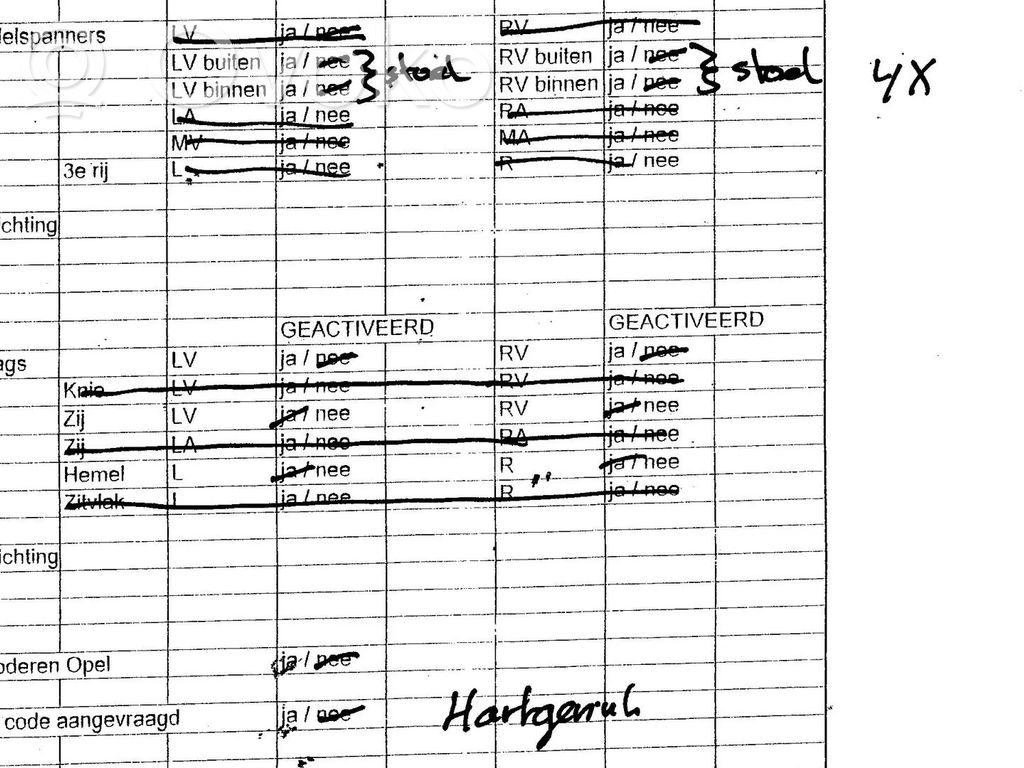 elspanners LV ja / nee RV ja / nee
LV buiten ja / nee RV buiten ja / nee
LV binnen ja / nee RV binnen ja / nee 4X
LA ja / nee RA ja / nee
MV ja / nee MA ja / nee
3e rij L ja / nee R ja / nee
ichting
GEACTIVEERD GEACTIVEERD
ags LV ja / nee RV ja / nee
Knie LV ja / nee RV ja / nee
Zij LV ja / nee RV ja / nee
Zij LA ja / nee RA ja / nee
Hemel L ja / nee R ja / nee
Zitvlak L ja / nee R ja / nee
ichting
oderen Opel ja / nee
code aangevraagd ja / nee